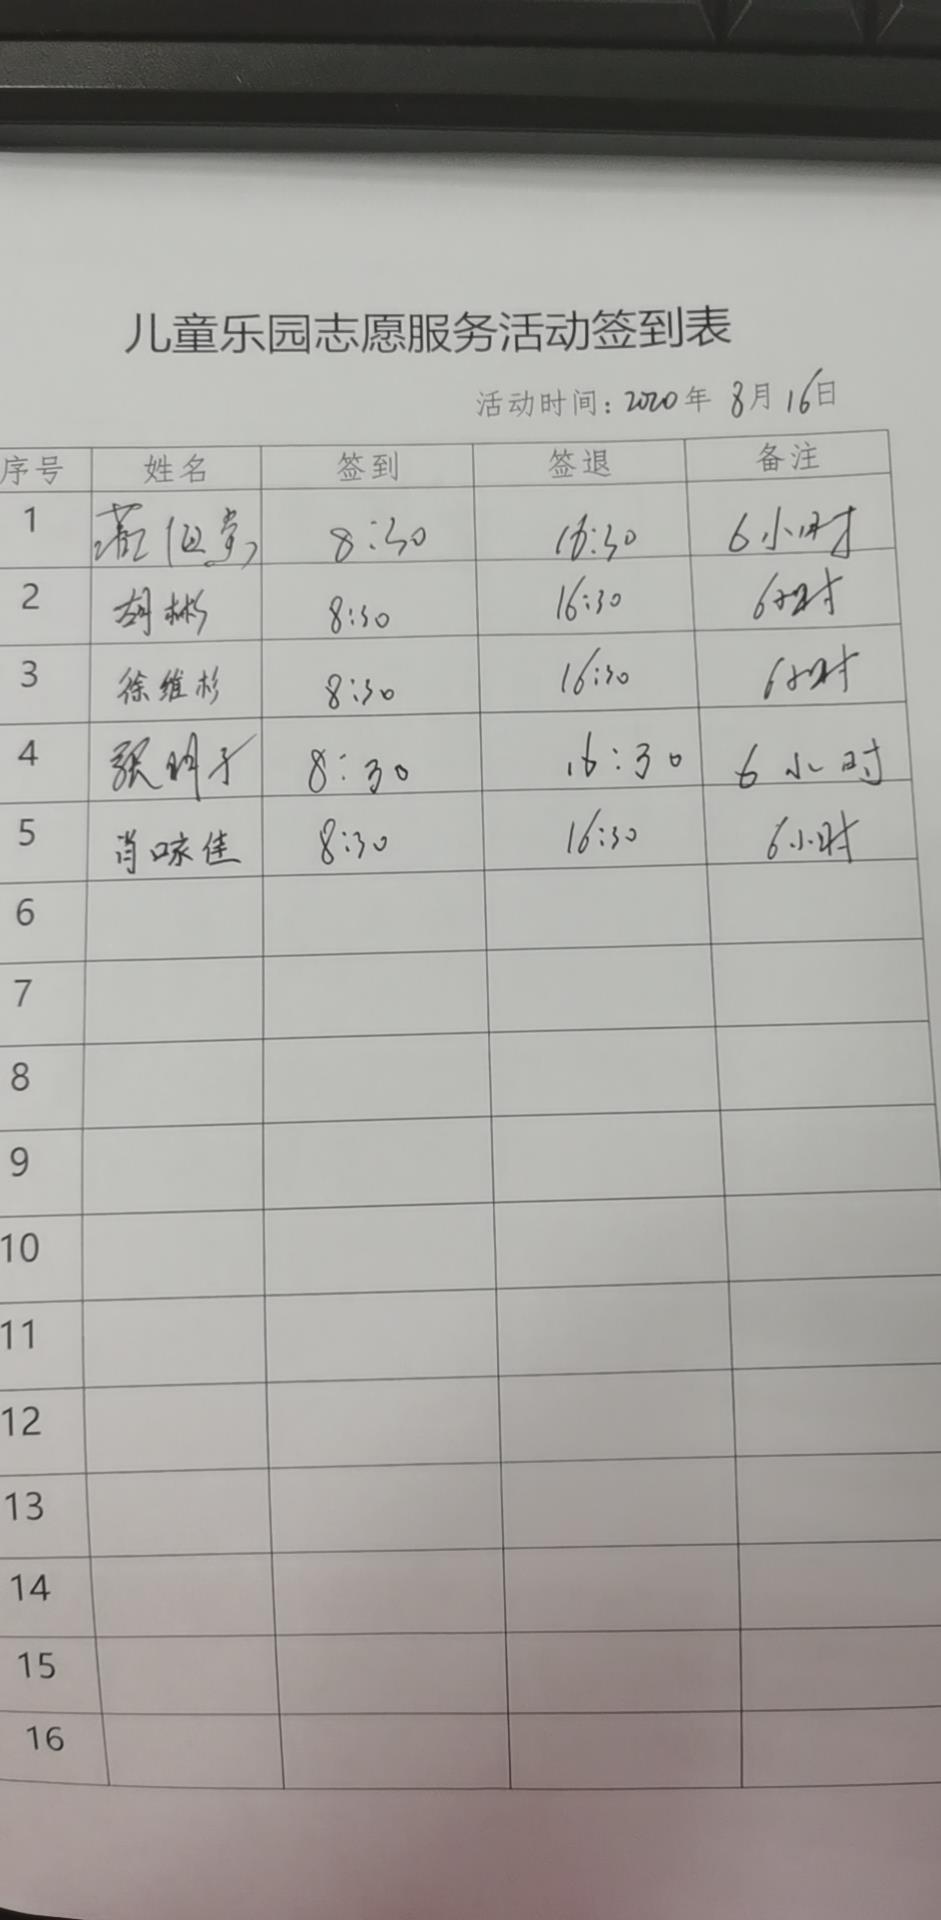 儿童乐园志愿服务活动签到表
活动时间：2020年 8月 16日
序号 姓名 签到 签退 备注
1 8:30 16:30 6小时
2 胡彬 8:30 16:30 6小时
3 徐维杉 8:30 16:30 6小时
4 张 8:30 16:30 6小时
5 肖咏佳 8:30 16:30 6小时
6
7
8
9
10
11
12
13
14
15
16